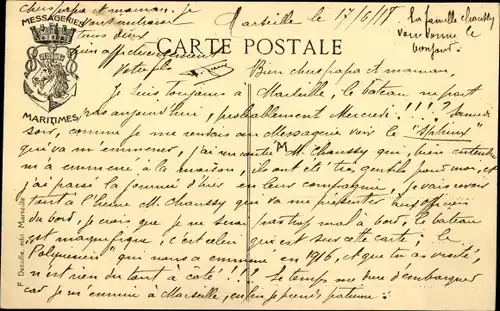 chers papa et maman. Je
tous deux
bien affectueusement
Votre fils
MESSAGERIES
MARITIMES
Marseille le 17/6/18
La famille Chaussy
vous donne le
bonjour.
CARTE POSTALE
Bien chers papa et maman,
Je suis toujours à Marseille, le bateau ne part
pas aujourd'hui, probablement Mercredi !!!? Samedi
soir, comme je me rendais aux Messagerie voir le "Sphinx"
qui va m'emmener, j'ai rencontré M. Chaussy qui, bien entendu
m'a emmené à la maison, ils ont été très gentils pour moi, et
j'ai passé la journée d'hier en leur compagnie, je vais voir
tantôt à l'heure M. Chaussy qui va me présenter aux officiers
du bord, je crois que je ne serai pas trop mal à bord, le bateau
est magnifique, c'est celui qui est sur cette carte; le
Polynésien qui nous a emmené en 1916, et que tu as visité,
n'est rien du tout à côté !!! Le temps me dure d'embarquer
car je m'ennuie à Marseille, enfin je prends patience!
F. Detaille, édit. Marseille